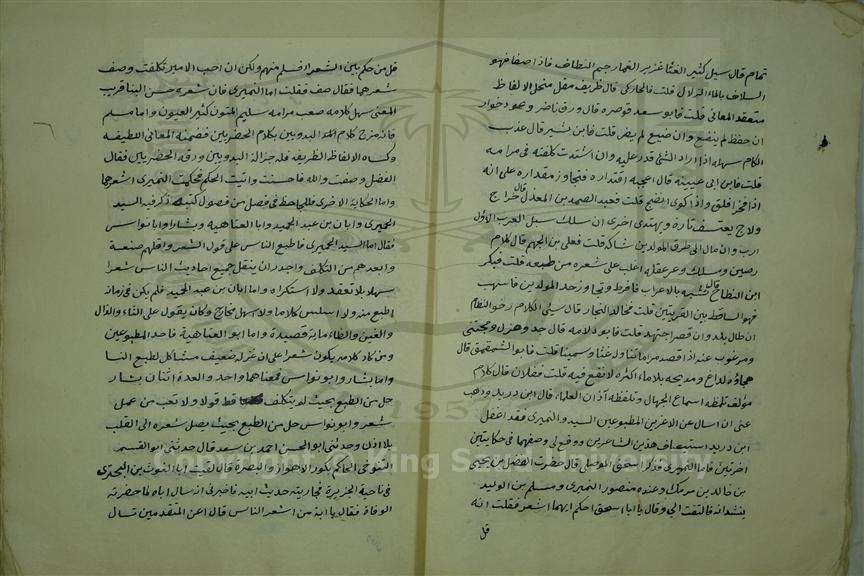 تمام قال سيل كثير الغثا غزير الغمار جم النطاف فاذا صفا فهو
السلاف بالماء الزلال قلت فالحاركى قال ظريف مقل منحل الالفاظ
متعقد المعاني قلت فابو سعد قوصره قال ورق ناضر وعود خوار
ان حفظ لم ينفع وان ضيع لم يضر قلت فابن يسير قال عذب
الكلام سهله اذا اراد الشئ قدر عليه وان اشتدت كلفته في مرامه
قلت فابن ابي عيينة قال اعجبه اقتداره فتجاوز مقداره على انه
اذا فخر افلق واذا كوى انضج قلت فعبد الصمد بن المعذل قال خراج
ولاج يعتسف تارة ويهتدى اخرى ان سلك سبل العرب الاول
ارب وان مال الى طرق المولدين شاكه قلت فعلى بن الجهم قال كلام
رصين ومسلك وعر عقله اغلب على شعره من طبعه قلت فبكر
ابن النطاح قال تشبه بالاعراب فافرط وتجاوز حد المولدين فاسهب
فهو الساقط بين القريتين قلت فخالد النجار قال سئى الكلام رخو النظام
ان طال بلد وان قصر اجتهد قلت فابو دلامه قال جد وهزل ومجتنى
ومرغوب عنه اذا قصد مراما تناول غثا وسمينا قلت فابو الشمقمق قال
هجاؤه لداغ ومديحه بلا ماء اكثره لا نفع فيه قلت ففلان قال كلام
مؤلف تلمظه اسماع الجهال وتلفظه آذان العلماء قال ابن دريد وذهب
عنى ان اسال عن الاعرابين المطبوعين السيد والنميرى فقد اغفل
ابن دريد استيصاف هذين الشاعرين ووقع لى وصفهما في حكايتين
اخرتين فاما النميرى فذكر اسحق الموصلى قال حضرت الفضل بن يحيى
بن خالد بن برمك وعنده منصور النميرى ومسلم بن الوليد
ينشدانه فالتفت الى وقال يا ابا اسحق احكم ايهما اشعر فقلت انه
قل
قل من حكم بين الشعراء فسلم منهم ولكن ان احب الامير تكلفت وصف
شعرهما فقال صف فقلت اما النميرى فان شعره حسن البنا قريب
المعنى سهل كلامه صعب مرامه سليم المتون كثير العيون واما مسلم
فانه مزج كلام البدويين بكلام الحضريين فضمنه المعاني اللطيفه
وكساه الالفاظ الظريفه فله جزالة البدويين ورقة الحضريين فقال
الفضل وصفت والله فاحسنت واتيت الحكم فحكمت النميرى اشعرهما
واما الحكاية الاخرى فللجاحظ في فصل من فصول كتبه ذكر فيه السيد
الحميرى وابان بن عبد الحميد وابا العتاهية وبشارا وابا نواس
فقال اما السيد الحميرى فاطبع الناس على قول الشعر واقلهم صنعة
وابعدهم من التكلف واجدر ان ينقل جميع احاديث الناس شعرا
سهلا بلا تعقد ولا استكراه واما ابان بن عبد الحميد فلم يكن في زمانه
اطبع منه ولا اسلس كلاما ولا اسهل مخارج وكان يقول على الثاء والذال
والغين والظاء ماية قصيدة واما ابو العتاهية فاحد المطبوعين
ومن كاد كلامه يكون شعرا على ان غزله ضعيف مشاكل لطبع النسا
واما بشار وابو نواس فمعناهما واحد والعدة اثنان بشار
حل من الطبع بحيث لم يتكلف قط قولا ولا تعب من عمل
شعر وابو نواس حل من الطبع بحيث يصل شعره الى القلب
بلا اذن وحدثنى ابو الحسن احمد بن سعد قال حدثنى ابو القسم
التنوخى الحاكم بكور الاهواز والبصرة قال لقيت ابا الغوث بن البحترى
في ناحية الجزيرة فجاريته حديث ابيه فاخبرنى انه سال اباه لما حضرته
الوفاة فقال يا ابة من اشعر الناس قال اعن المتقدمين تسال